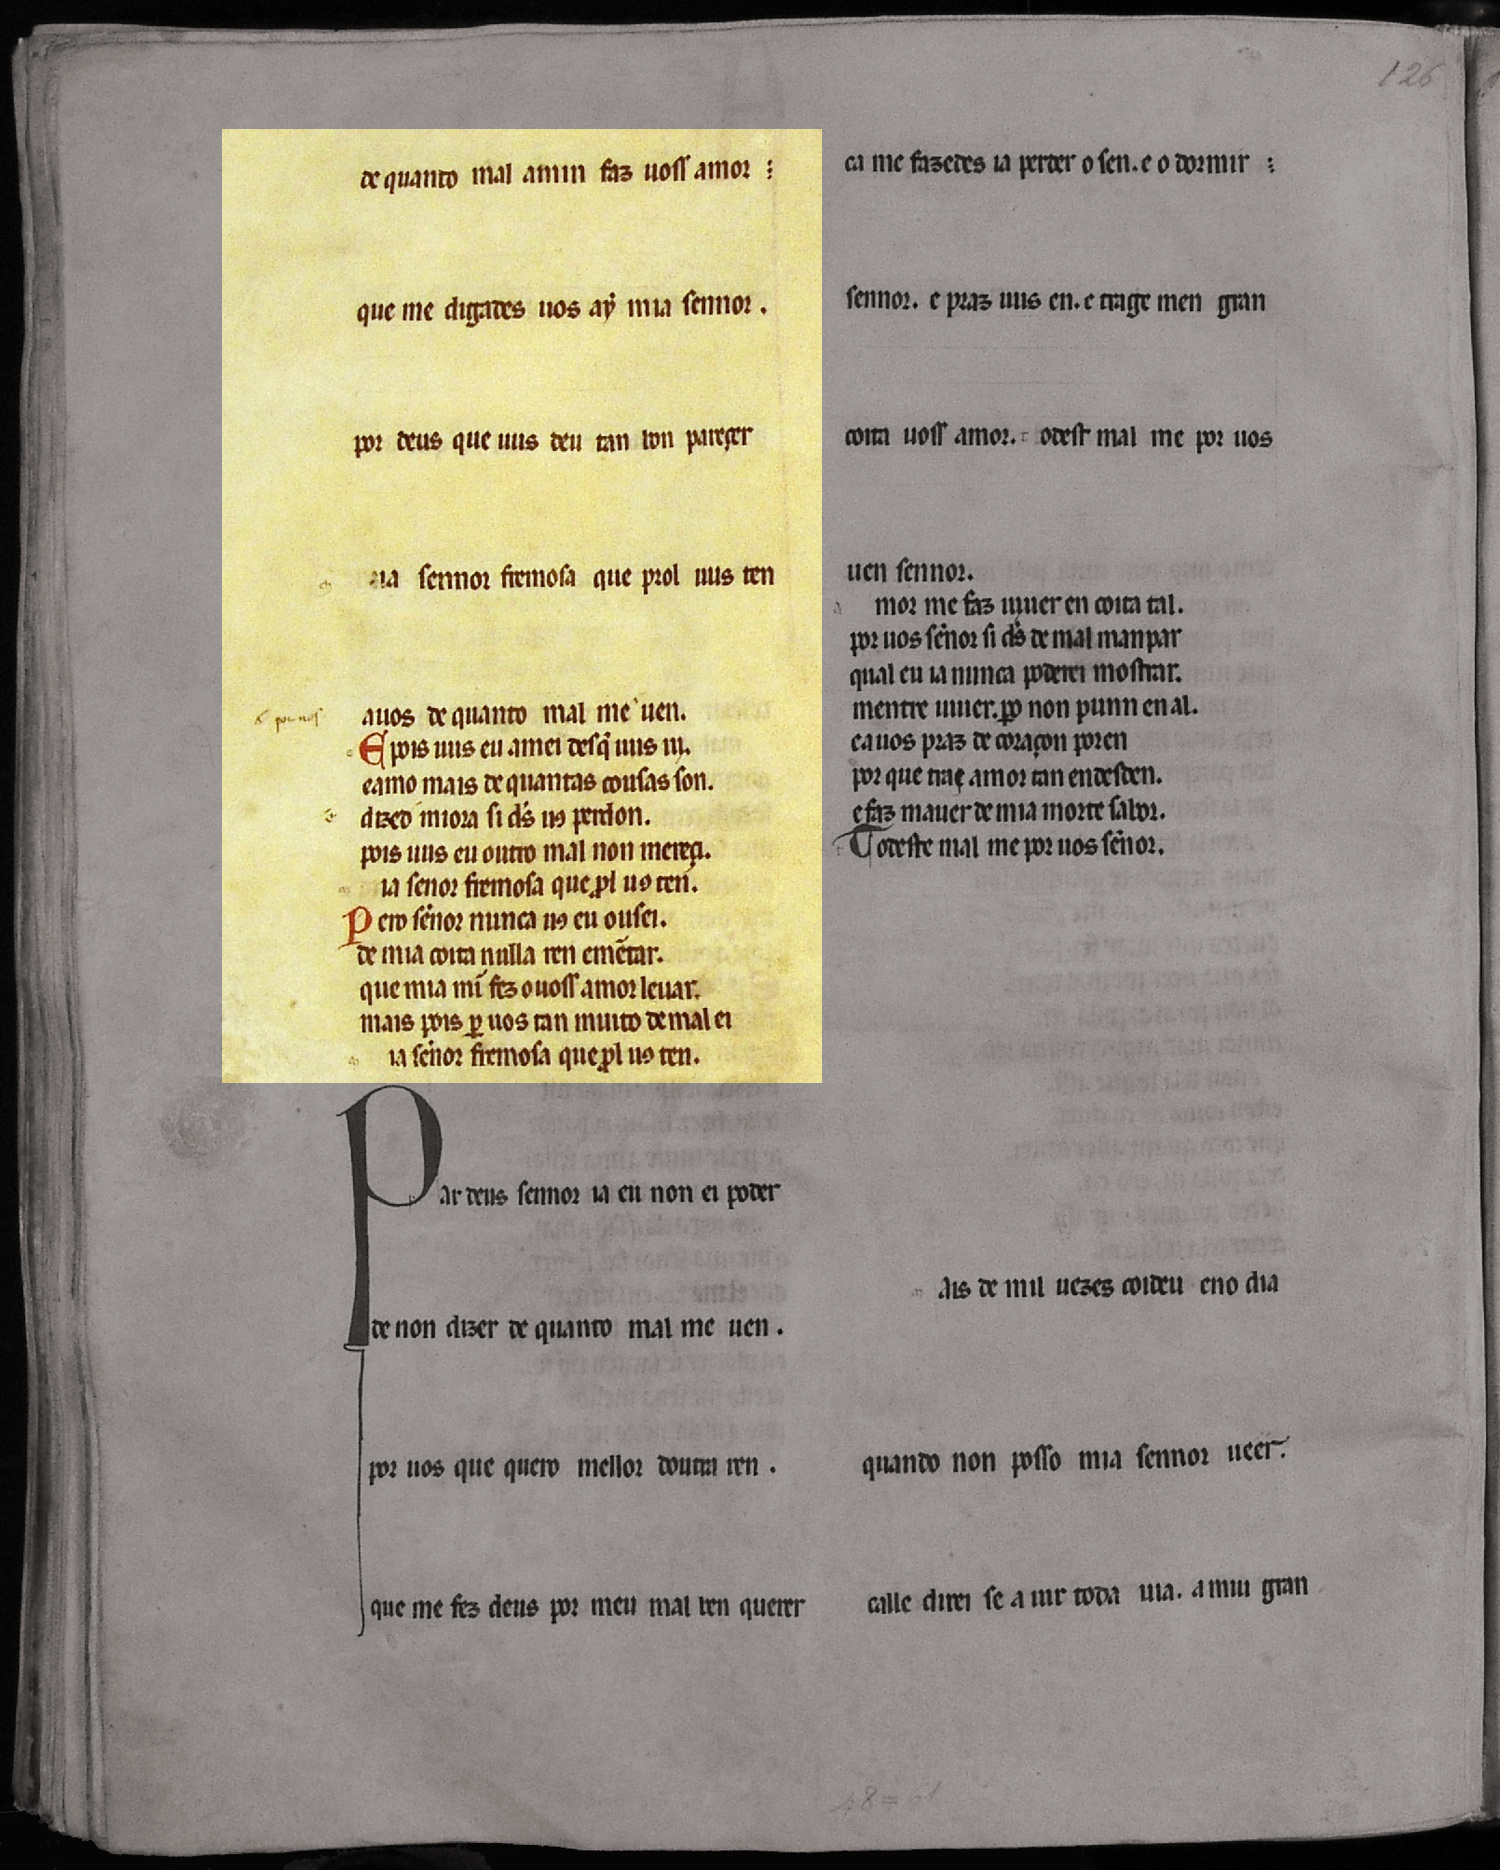 de quanto mal amin faz uoss amor :
que me digades uos aẏ mia sennor .
por deus que uus deu tan bon pareçer
ia sennor fremosa que prol uus ten
auos de quanto mal me uen.
E pois uus eu amei desq̃ uus ui.
eamo mais de quantas cousas son.
dized miora si d̃s uꝯ perdon.
pois uus eu outro mal non mereçi.
ia senor fremosa que ꝓl uꝯ ten.
Pero sẽnor nunca uꝯ eu ousei.
de mia coita nulla ren emẽtar.
que mia mĩ fez o uoss amor leuar.
mais pois ꝑ uos tan muito de mal ei
ia sẽnor fremosa que ꝓl uꝯ ten.
Par deus sennor ia eu non ei poder
de non dizer de quanto mal me uen .
por uos que quero mellor doutra ren .
que me fez deus por meu mal ben querer
ca me fazedes ia perder o sen. e o dormir :
sennor. e praz uus en. e trage men gran
coita uoss amor. todest mal me por uos
uen sennor.
mor me faz uiuer en coita tal.
por uos sẽnor si d̃s de mal manpar
qual eu ia nunca poderei mostrar.
mentre uiuer. ꝑo non punn en al.
ea uos praz de coraçon poren
por que trag amor tan endesden.
e faz mauer de mia morte sabor.
Todeste mal me por uos sẽnor.
ais de mil uezes coideu eno dia
quando non posso mia sennor ueer.
calle direi se a uir toda uia. a mui gran